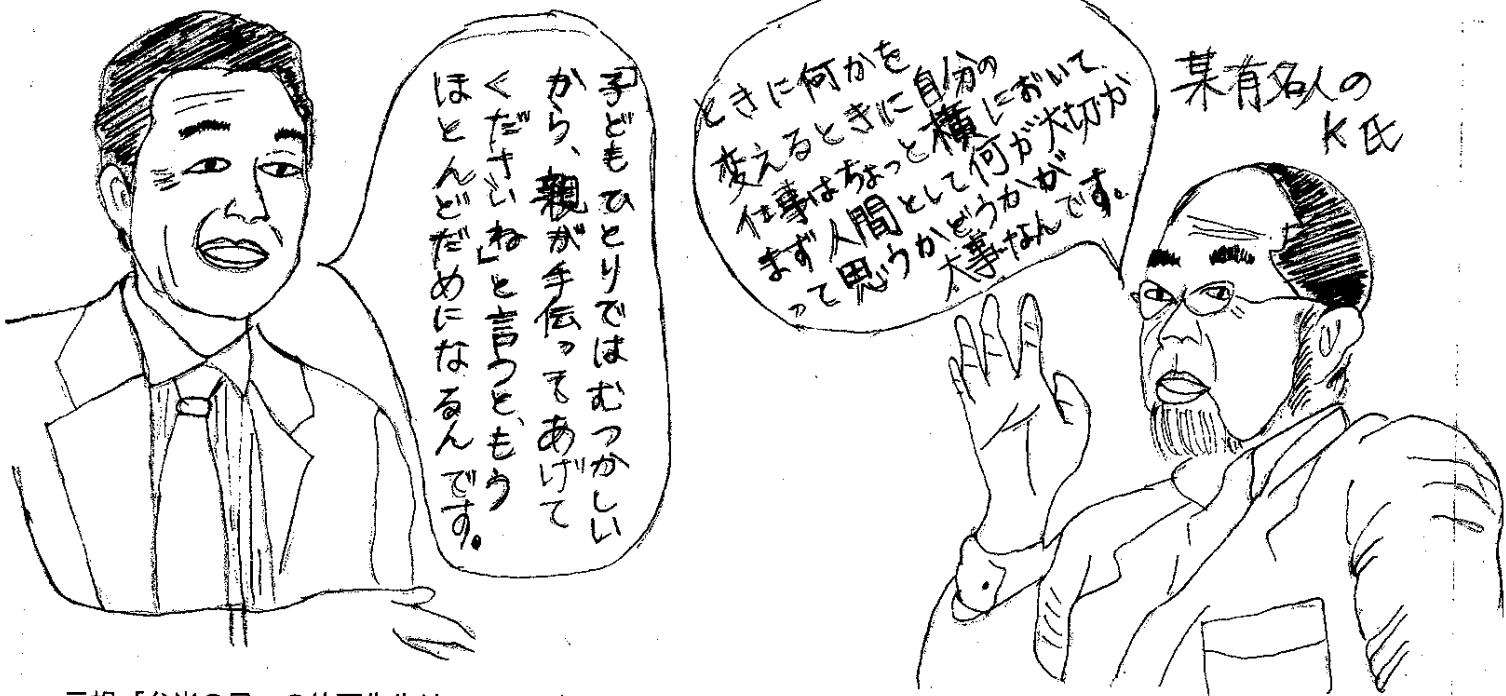 「子どもひとりではむつかしい
から、親が手伝ってあげて
くださいね」と言うと、もう
ほとんどだめになるんです。
ときに何かを
変えるときに自分の
仕事はちょっと横において
まず人間として何が大切か
って思うかどうかが
大事なんです。
某有名人の
K氏